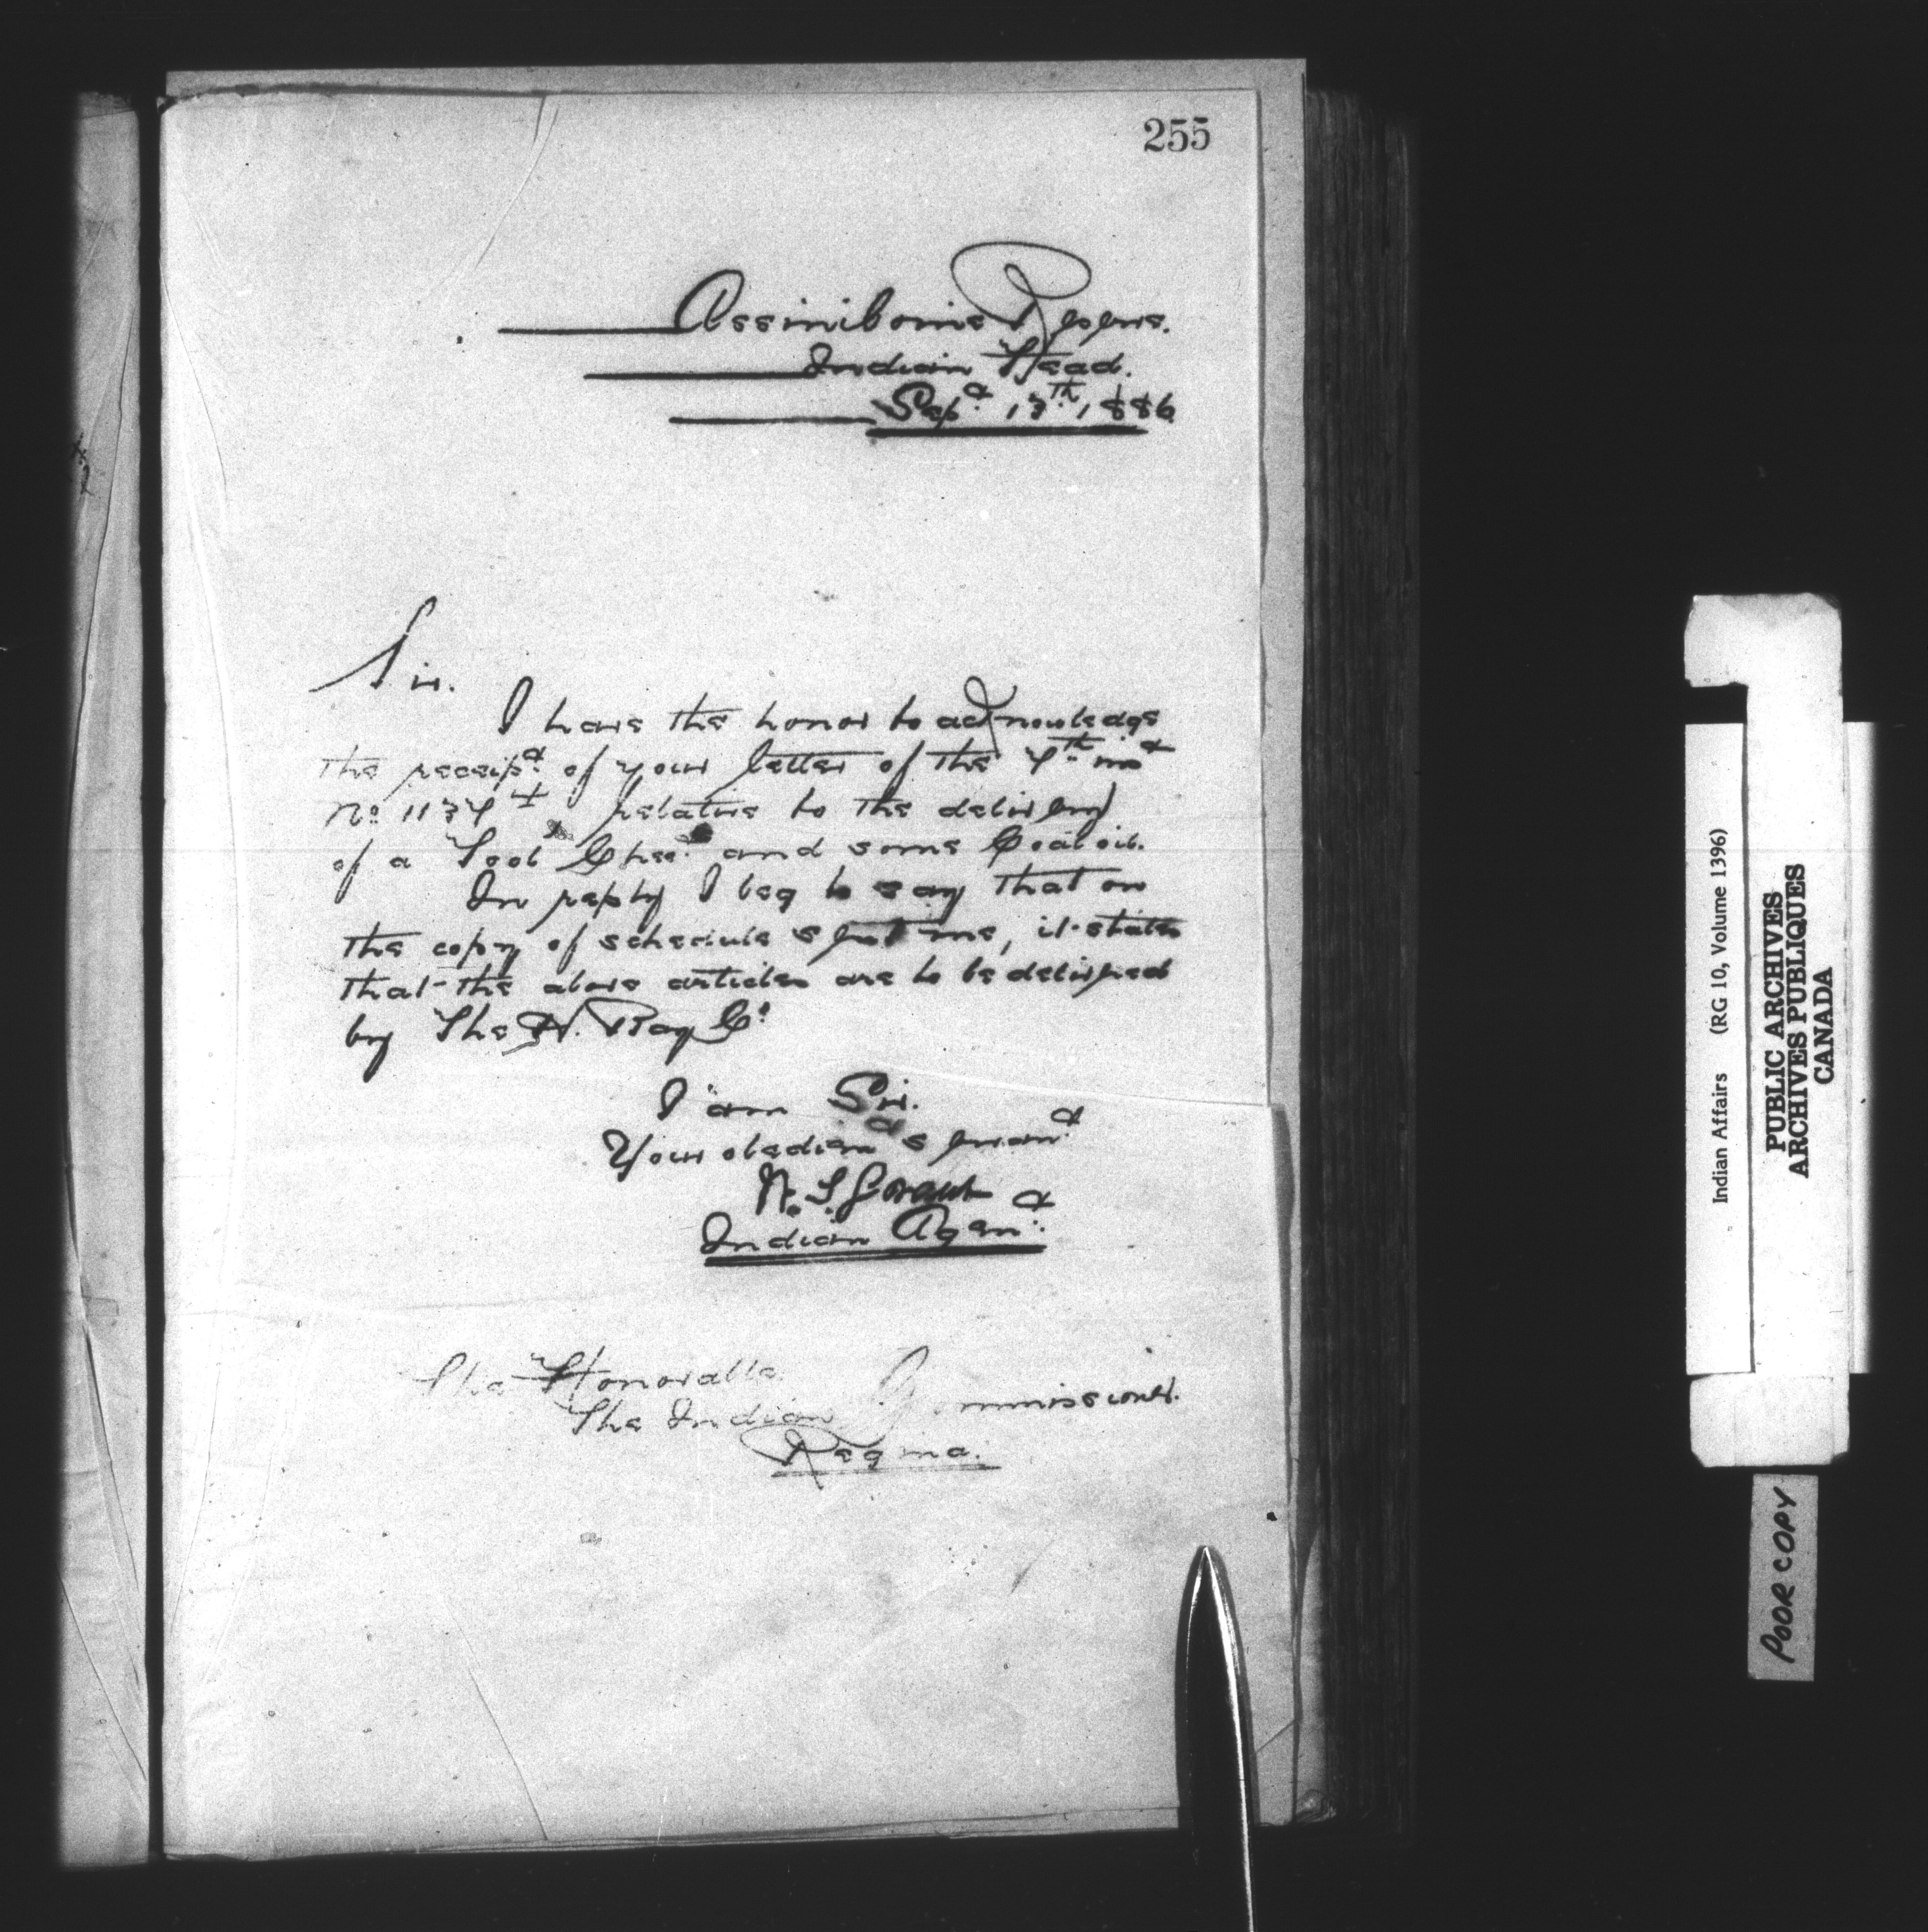 255
Assiniboine Reserve.
Indian Head.
Sept. 13th 1886
Sir.
I have the honor to acknowledge
the receipt of your letter of the 4th inst
No. 1134 relative to the delivery
of a Tool Chest and some Coal oil.
In reply I beg to say that on
the copy of schedule sent me, it states
that the above articles are to be delivered
by The H. Bay Co.
I am Sir.
Your obedient servant
W. S. Grant
Indian Agent.
The Honorable
The Indian Commissioner.
Regina.
Indian Affairs (RG 10, Volume 1396)
PUBLIC ARCHIVES
ARCHIVES PUBLIQUES
CANADA
POOR COPY